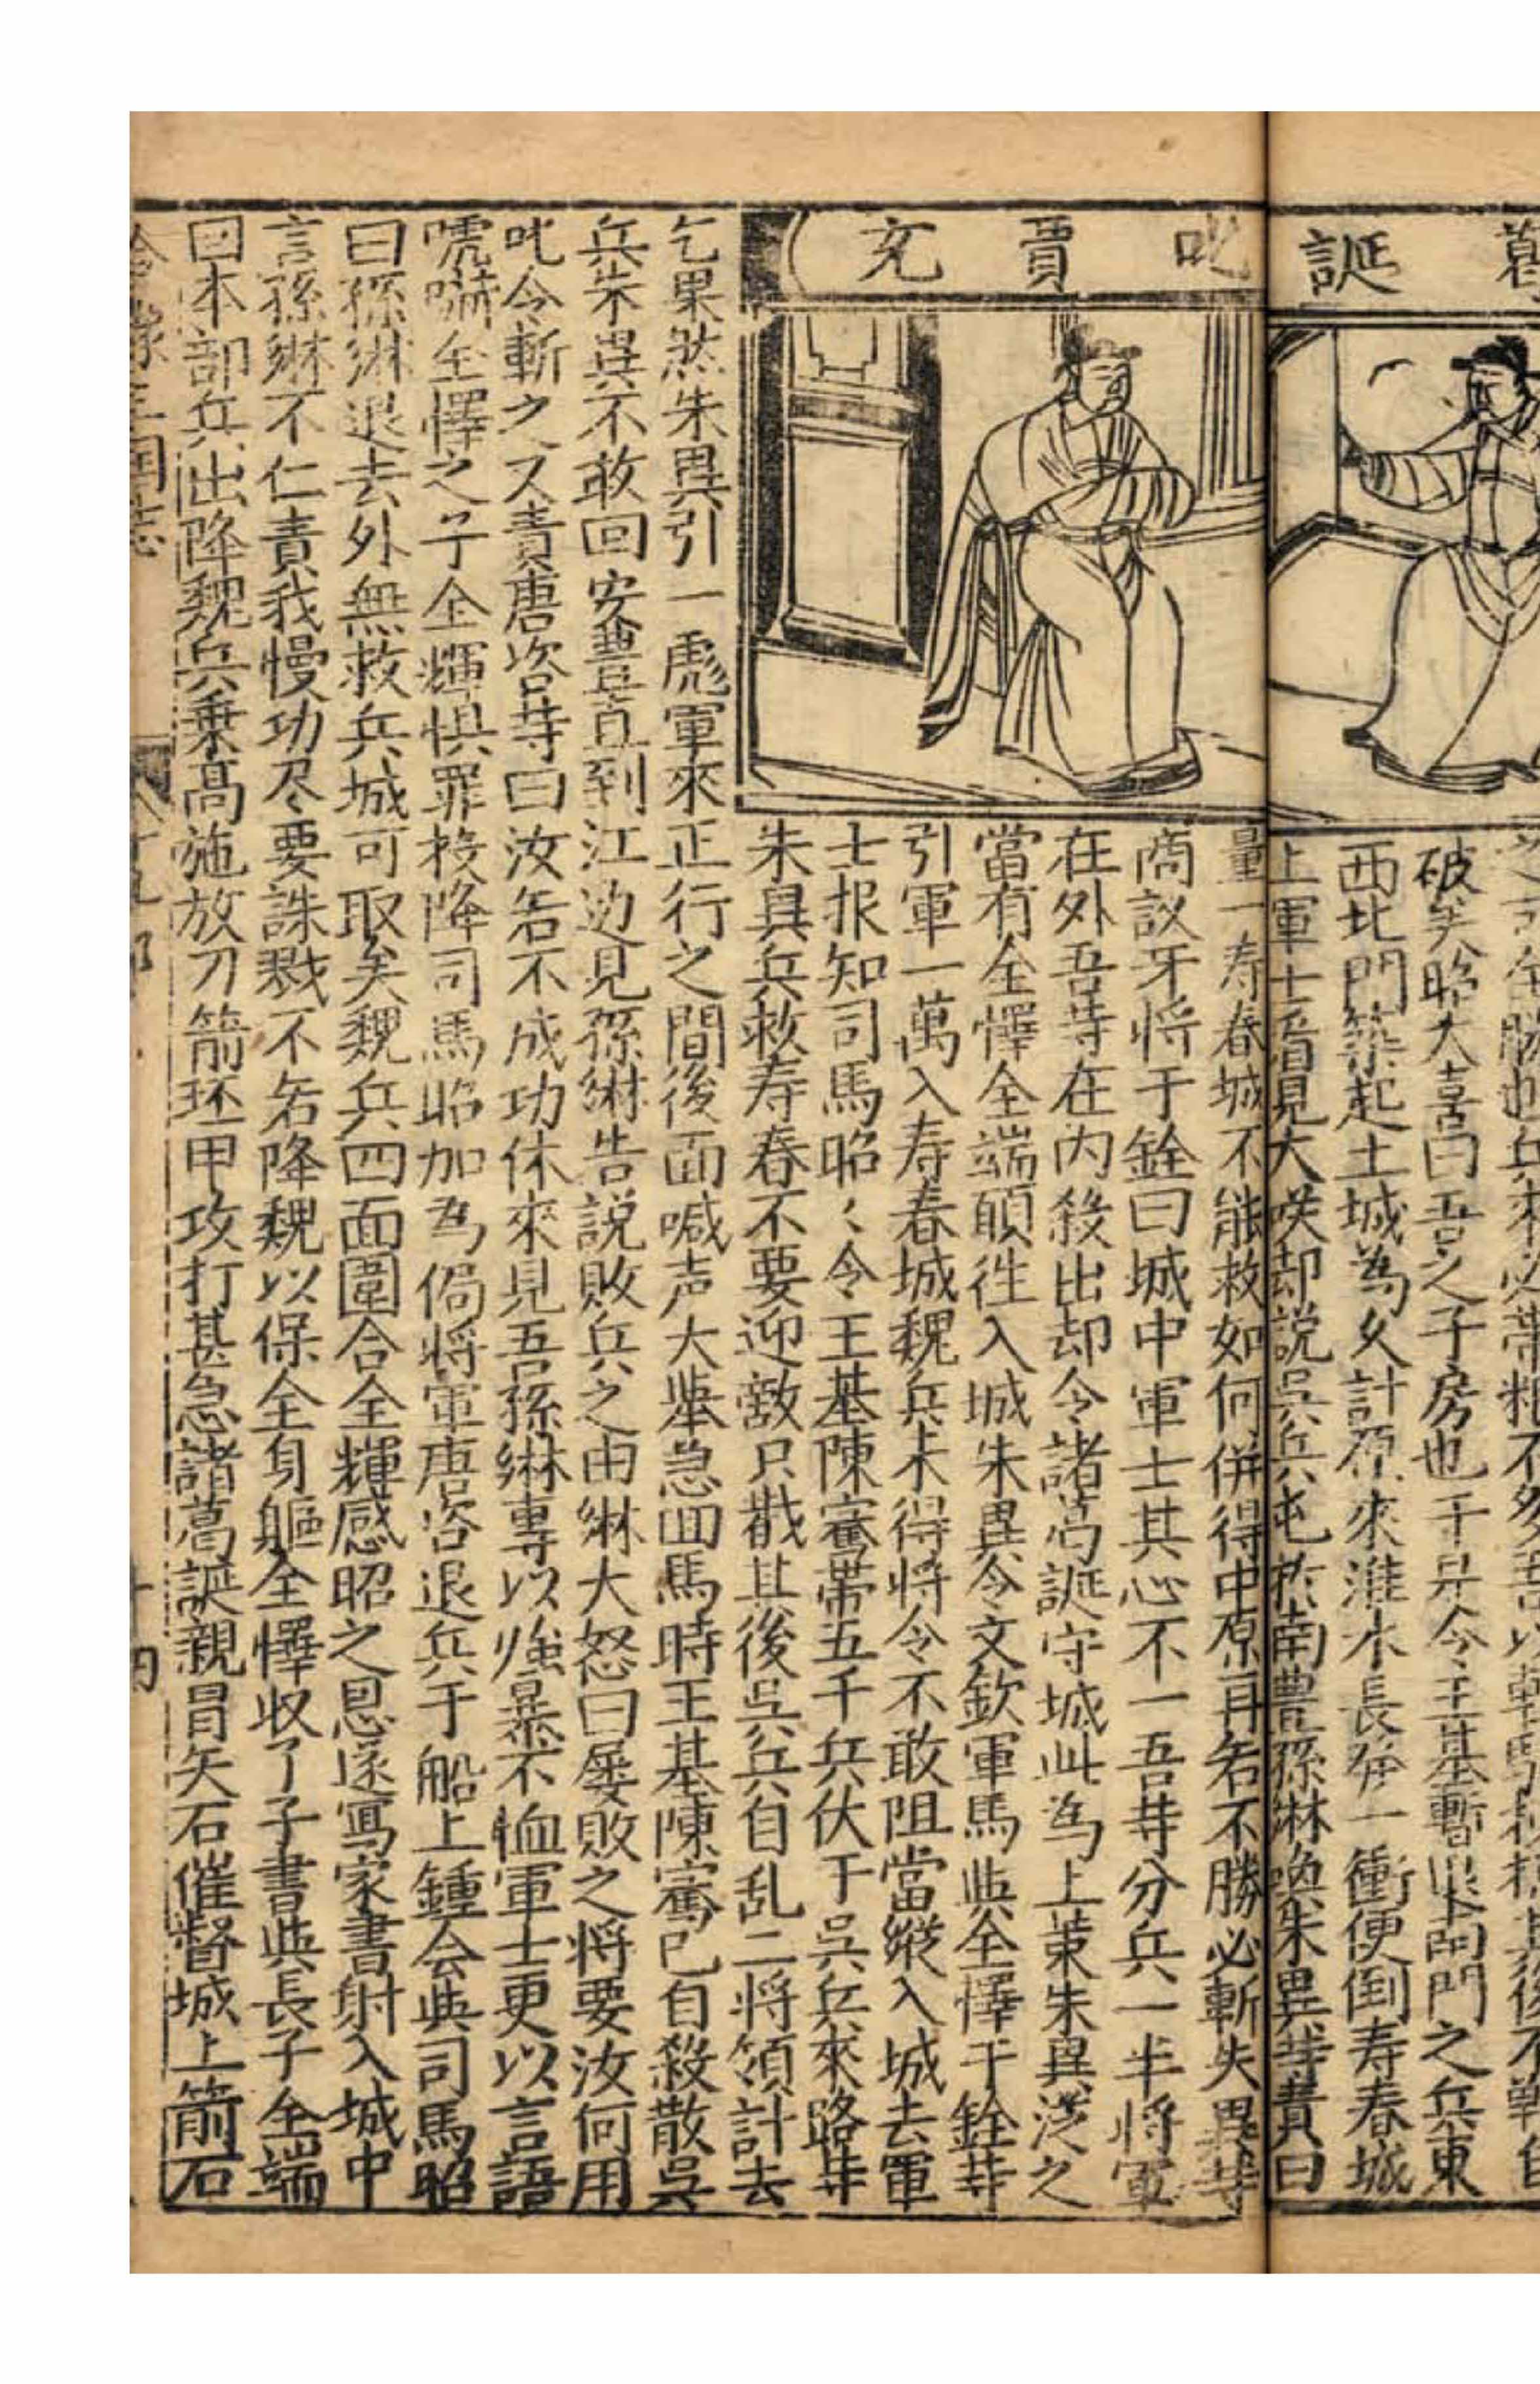 葛誕
叱賈充
全勝也兵來必帶粮不多吾以輕騎
破矣昭大喜曰吾之子房也于是令王基暫退南門之兵東
西北門築起土城為久計原來淮水長發一衝便倒寿春城
上軍士看見大咲却説吳兵屯於南豊孫綝喚朱異䓁責曰
量一寿春城不能救如何併得中原再若不勝必斬失異䓁
商议牙将于銓曰城中軍士其心不一吾䓁分兵一半将軍
在外吾䓁在内殺出却令諸葛誕守城此為上策朱異從之
當有全懌全端願徃入城朱異令文欽軍馬與全懌于銓䓁
引軍一萬入寿春城魏兵未得将令不敢阻當縱入城去軍
士报知司馬昭〻令王基陳騫帶五千兵伏于吳兵來路䓁
朱異兵救寿春不要迎敵只戳其後吳兵自乱二将領計去
乞果然朱異引一彪軍來正行之間後面喊声大舉急囬馬時王基陳騫已自殺散吳
兵朱異不敢回安豊县直到江边見孫綝告説敗兵之由綝大怒曰屡敗之将要汝何用
叱令斬之又責唐咨䓁曰汝若不成功休來見吾孫綝專以強暴不恤軍士更以言語
唬嚇全懌之子全輝惧罪投降司馬昭加為偏将軍唐咨退兵于船上鍾会與司馬昭
曰孫綝退去外無救兵城可取矣魏兵四面圍合全輝感昭之恩遂寫家書射入城中
言孫綝不仁責我慢功尽要誅戮不若降魏以保全身軀全懌收了子書與長子全端
囙本部兵出降魏兵乗高施放刀箭坯甲攻打甚急諸葛誕親冒矢石催督城上箭石